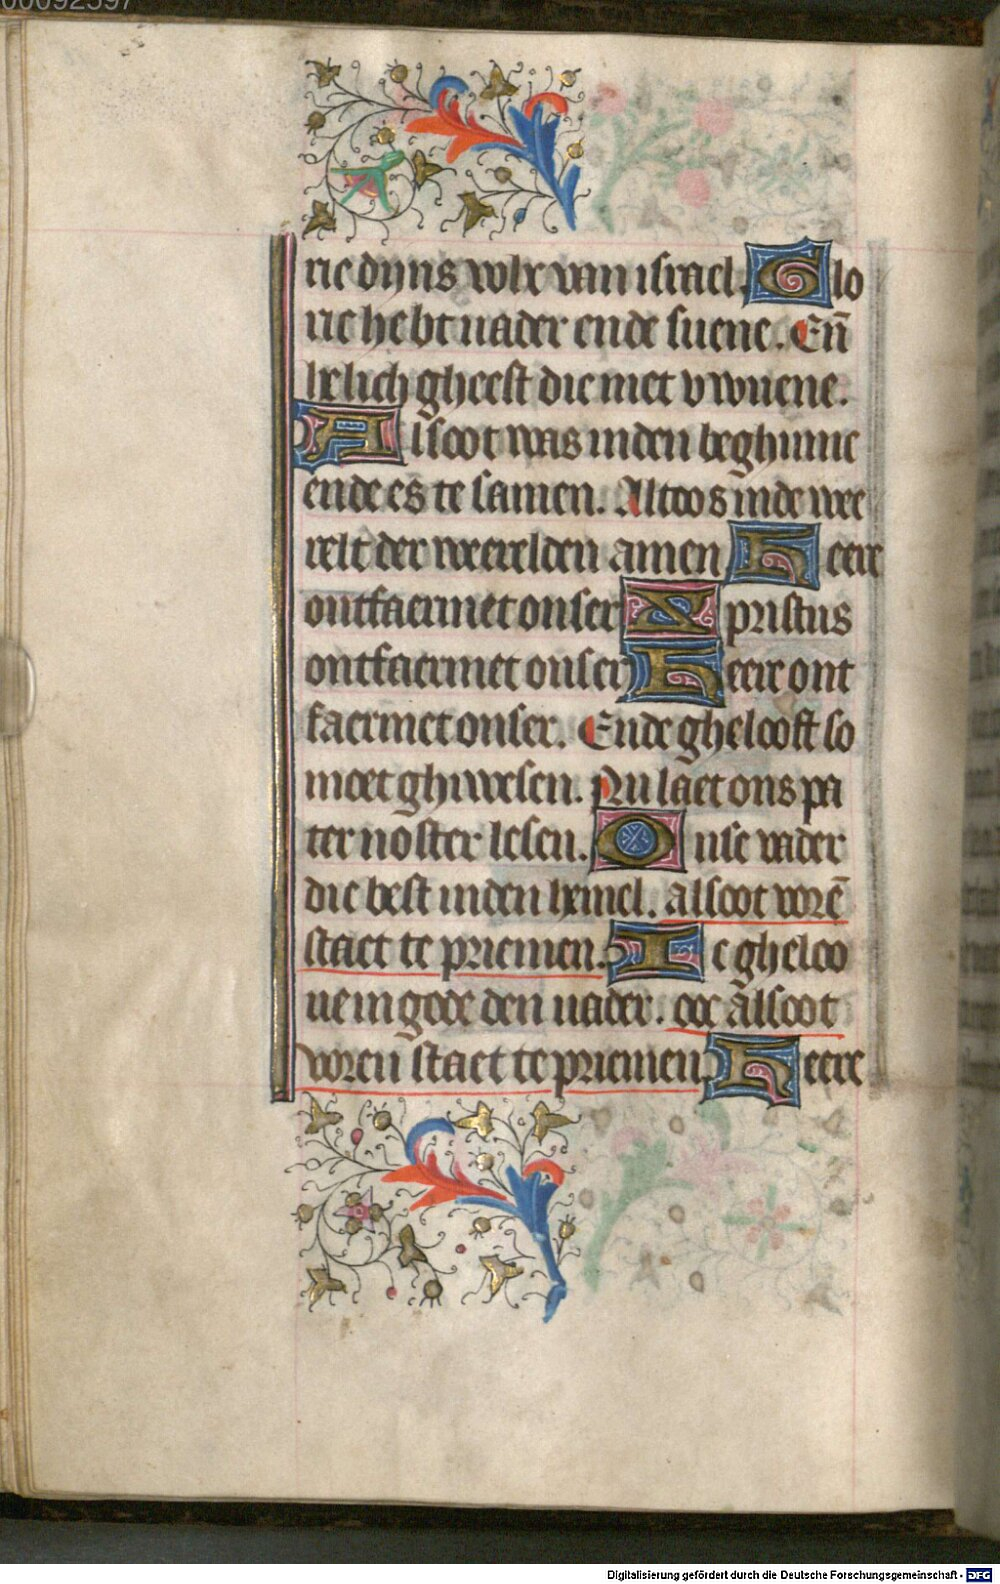 00092597
rie dyns volx van israel. Glo
rie hebt uader ende suene. Eñ
helich gheest die met v wuene.
Alsoot was inden beghinne
ende es te samen. Altoos inde wee
relt der weerelden amen Heere
ontfaermet onser Xpristus
ontfaermet onser Heere ont
faermet onser. Ende ghelooft so
moet ghi wesen. Nu laet ons pa
ter noster lesen. Onse vader
die best inden hemel. alsoot vorē
staet te priemen. Ic gheloo
ue in gode den uader. oec alsoot
voren staet te priemen Heere
Digitalisierung gefördert durch die Deutsche Forschungsgemeinschaft - DFG